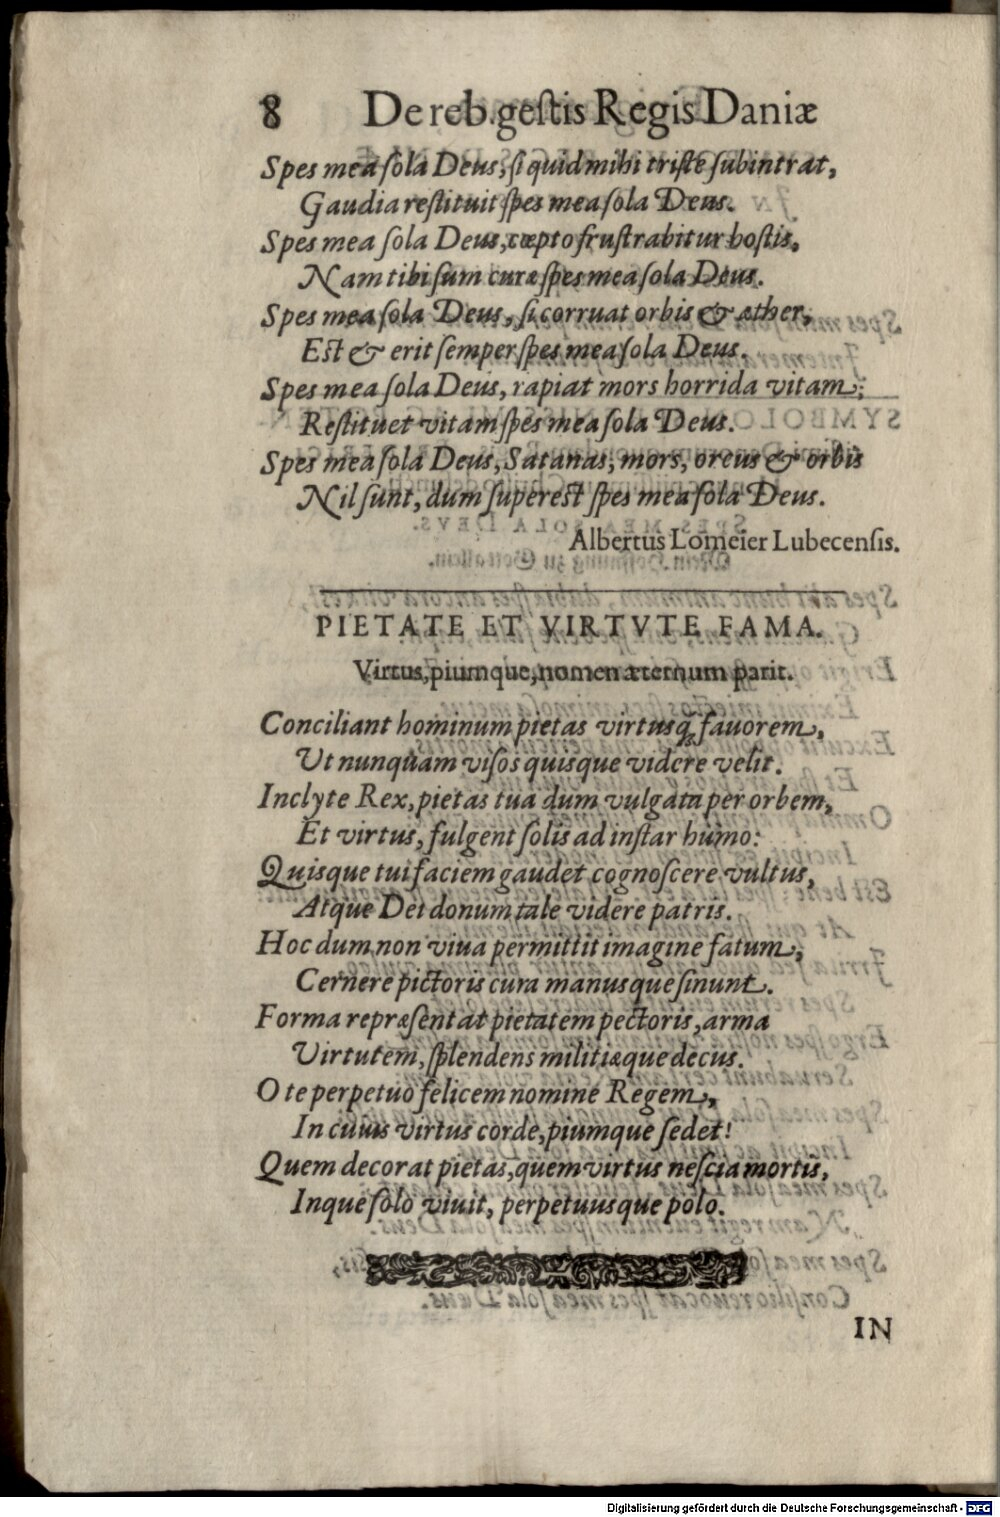 8 De reb. gestis Regis Daniæ
Spes mea ſola Deus, ſi quid mihi triſte ſubintrat,
Gaudia reſtituit ſpes mea ſola Deus.
Spes mea ſola Deus, cœpto fruſtrabitur hoſtis,
Nam tibi ſum curæ ſpes mea ſola Deus.
Spes mea ſola Deus, ſi corruat orbis & æther,
Est & erit ſemper ſpes mea ſola Deus.
Spes mea ſola Deus, rapiat mors horrida vitam;
Reſtituet vitam ſpes mea ſola Deus.
Spes mea ſola Deus, Satanas, mors, orcus & orbis
Nil ſunt, dum ſuperest ſpes mea ſola Deus.
Albertus Lomeier Lubecenſis.
PIETATE ET VIRTVTE FAMA.
Virtus, piumque, nomen æternum parit.
Conciliant hominum pietas virtusq́; fauorem,
Ut nunquam viſos quisque videre velit.
Inclyte Rex, pietas tua dum vulgata per orbem,
Et virtus, fulgent ſolis ad inſtar humo:
Quisque tui faciem gaudet cognoſcere vultus,
Atque Dei donum tale videre patris.
Hoc dum non viua permittit imagine fatum,
Cernere pictoris cura manusque ſinunt.
Forma repræſentat pietatem pectoris, arma
Virtutem, ſplendens militiæque decus.
O te perpetuo felicem nomine Regem,
In cuius virtus corde, piumque ſedet!
Quem decorat pietas, quem virtus neſcia mortis,
Inque ſolo viuit, perpetuusque polo.
IN
Digitalisierung gefördert durch die Deutsche Forschungsgemeinschaft - DFG